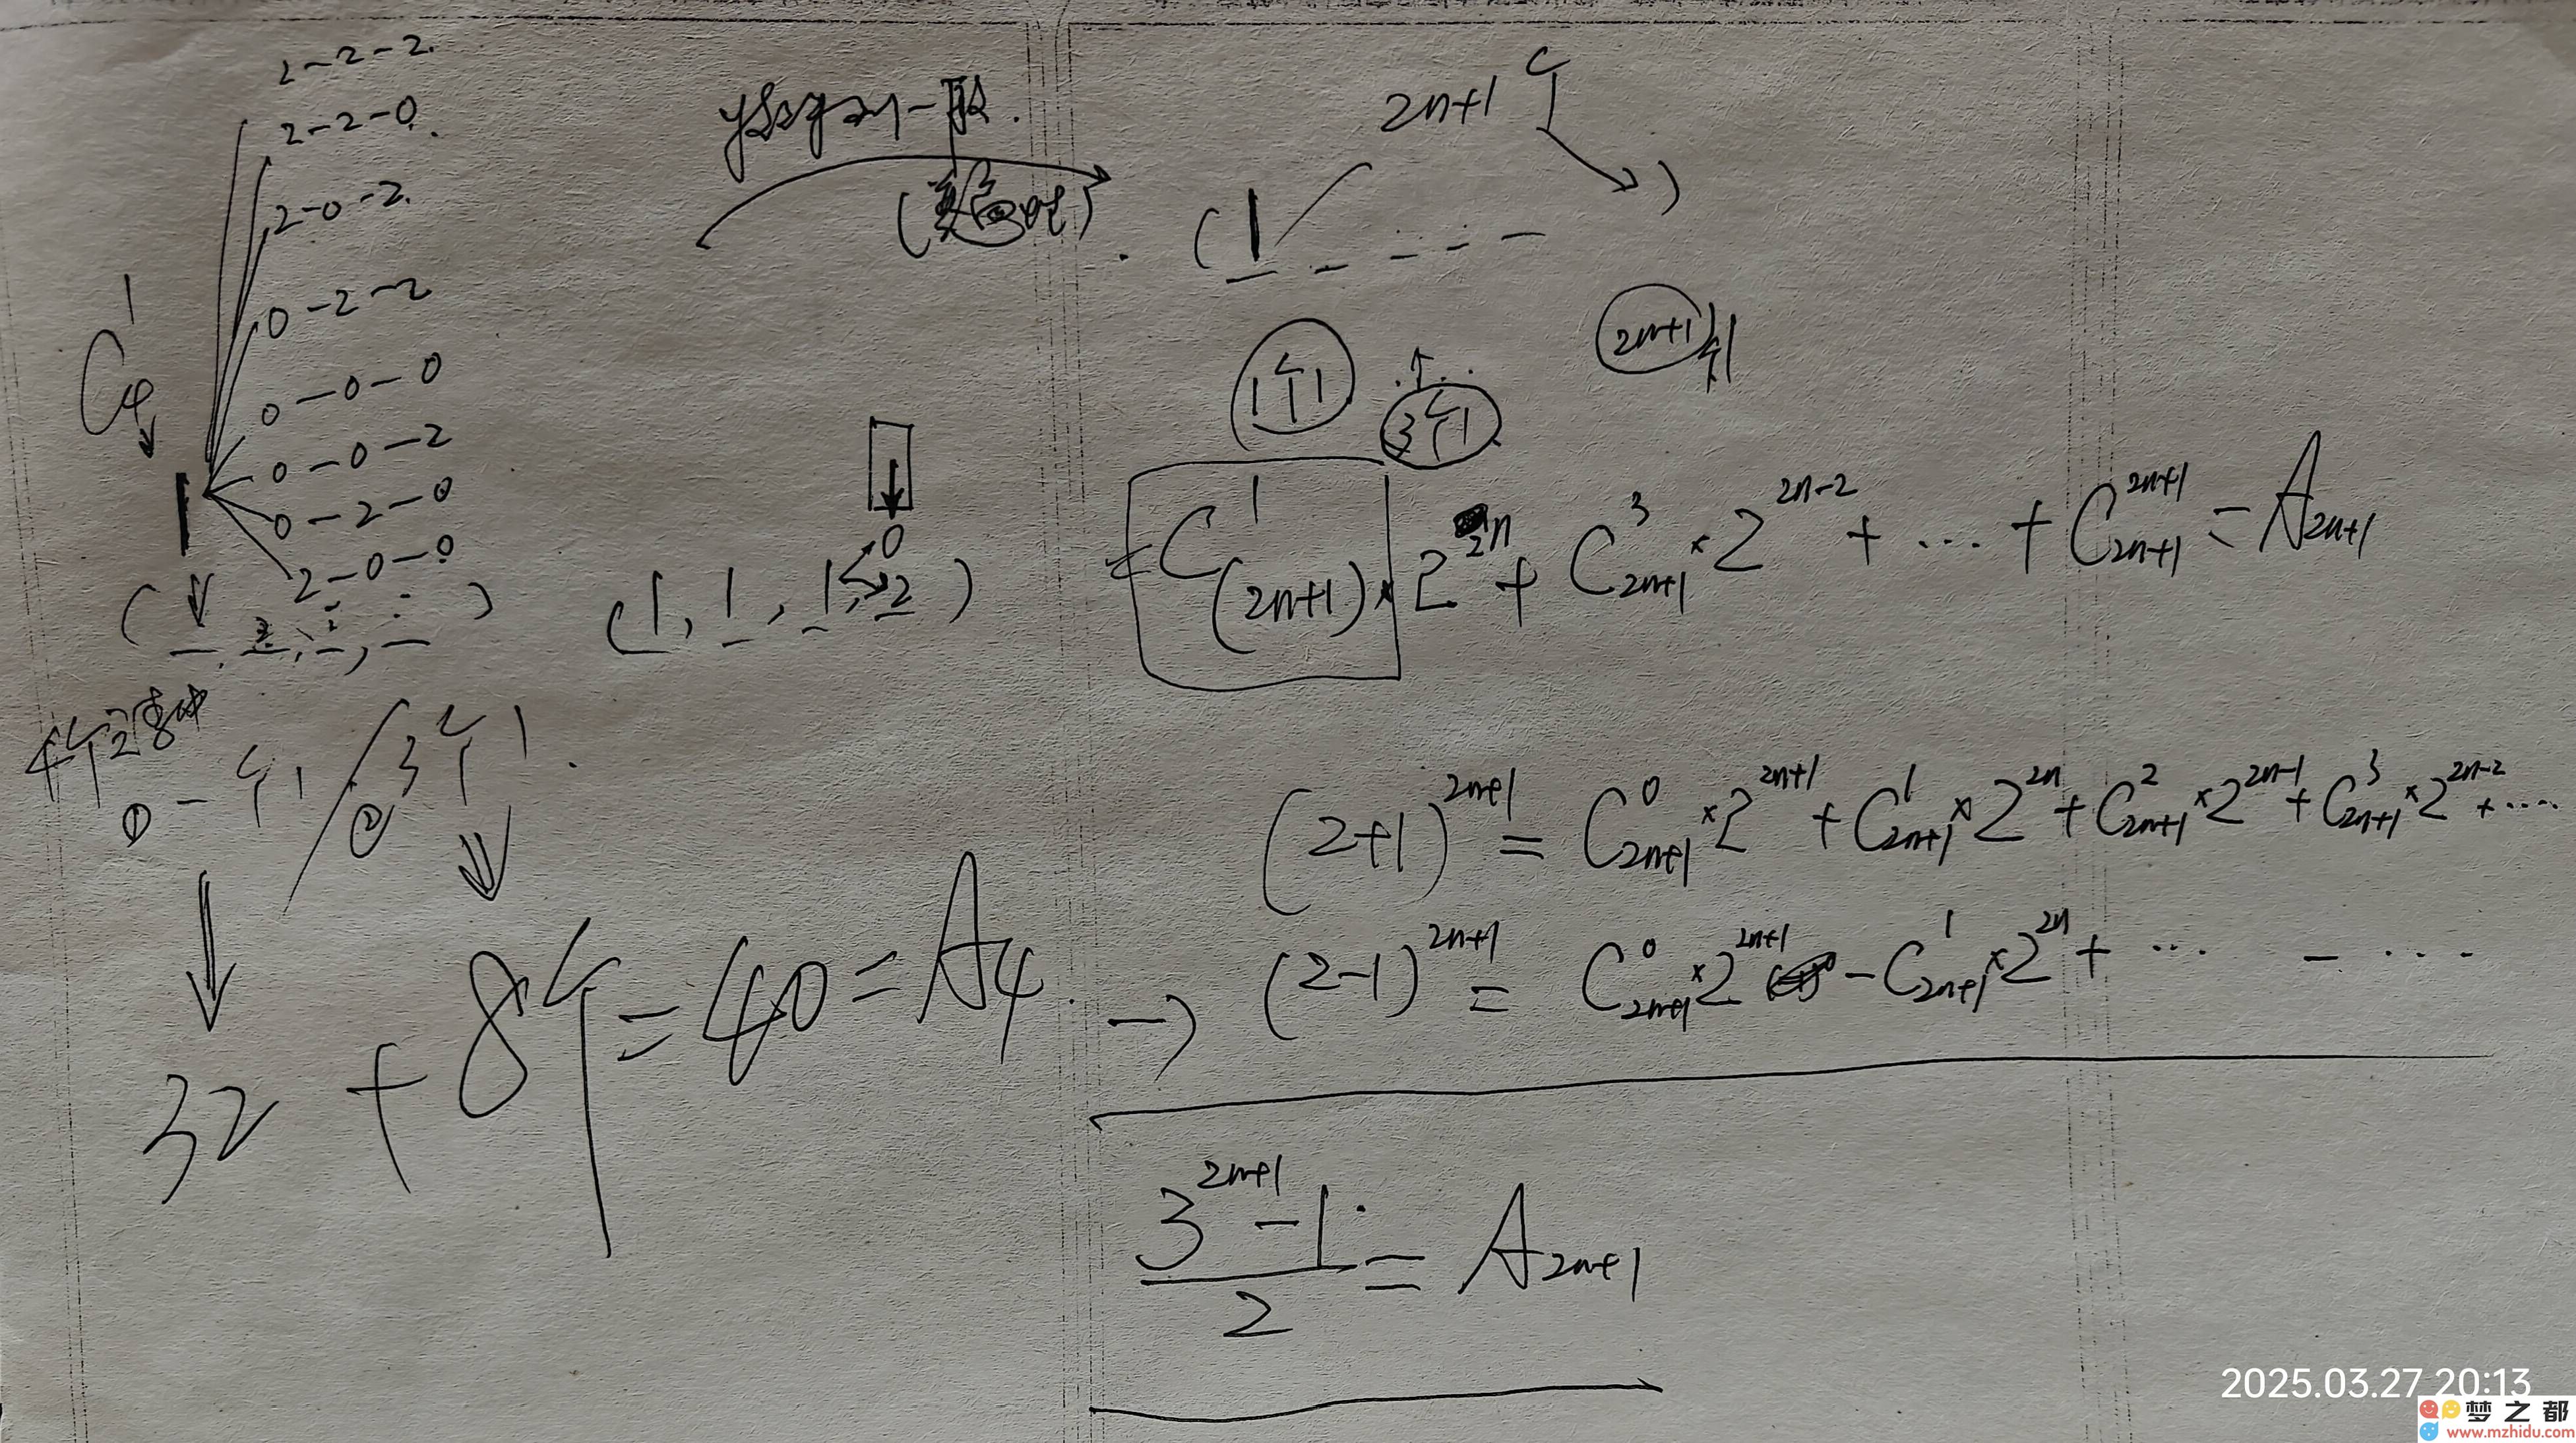 2-2-2.
2-2-0.
2-0-2.
0-2-2
0-0-0
0-0-2
0-2-0
2-0-0
C₄¹
1
(1, 1, 1, 0
2)
①一个1 / ②3个1.
32 + 8个 = 40 = A₄.
特殊到一般.
2n+1个
(1
1个1
3个1
2n+1个1
= C¹₍₂ₙ₊₁₎ × 2²ⁿ + C³₂ₙ₊₁ × 2²ⁿ⁻² + ... + C²ⁿ⁺¹₂ₙ₊₁ = A₂ₙ₊₁
(2+1)²ⁿ⁺¹ = C⁰₂ₙ₊₁ × 2²ⁿ⁺¹ + C¹₂ₙ₊₁ × 2²ⁿ + C²₂ₙ₊₁ × 2²ⁿ⁻¹ + C³₂ₙ₊₁ × 2²ⁿ⁻² + ....
→ (2-1)²ⁿ⁺¹ = C⁰₂ₙ₊₁ × 2²ⁿ⁺¹ - C¹₂ₙ₊₁ × 2²ⁿ + ... - ....
(3²ⁿ⁺¹ - 1)/2 = A₂ₙ₊₁
2025.03.27 20:13
梦之都
www.mzhidu.com